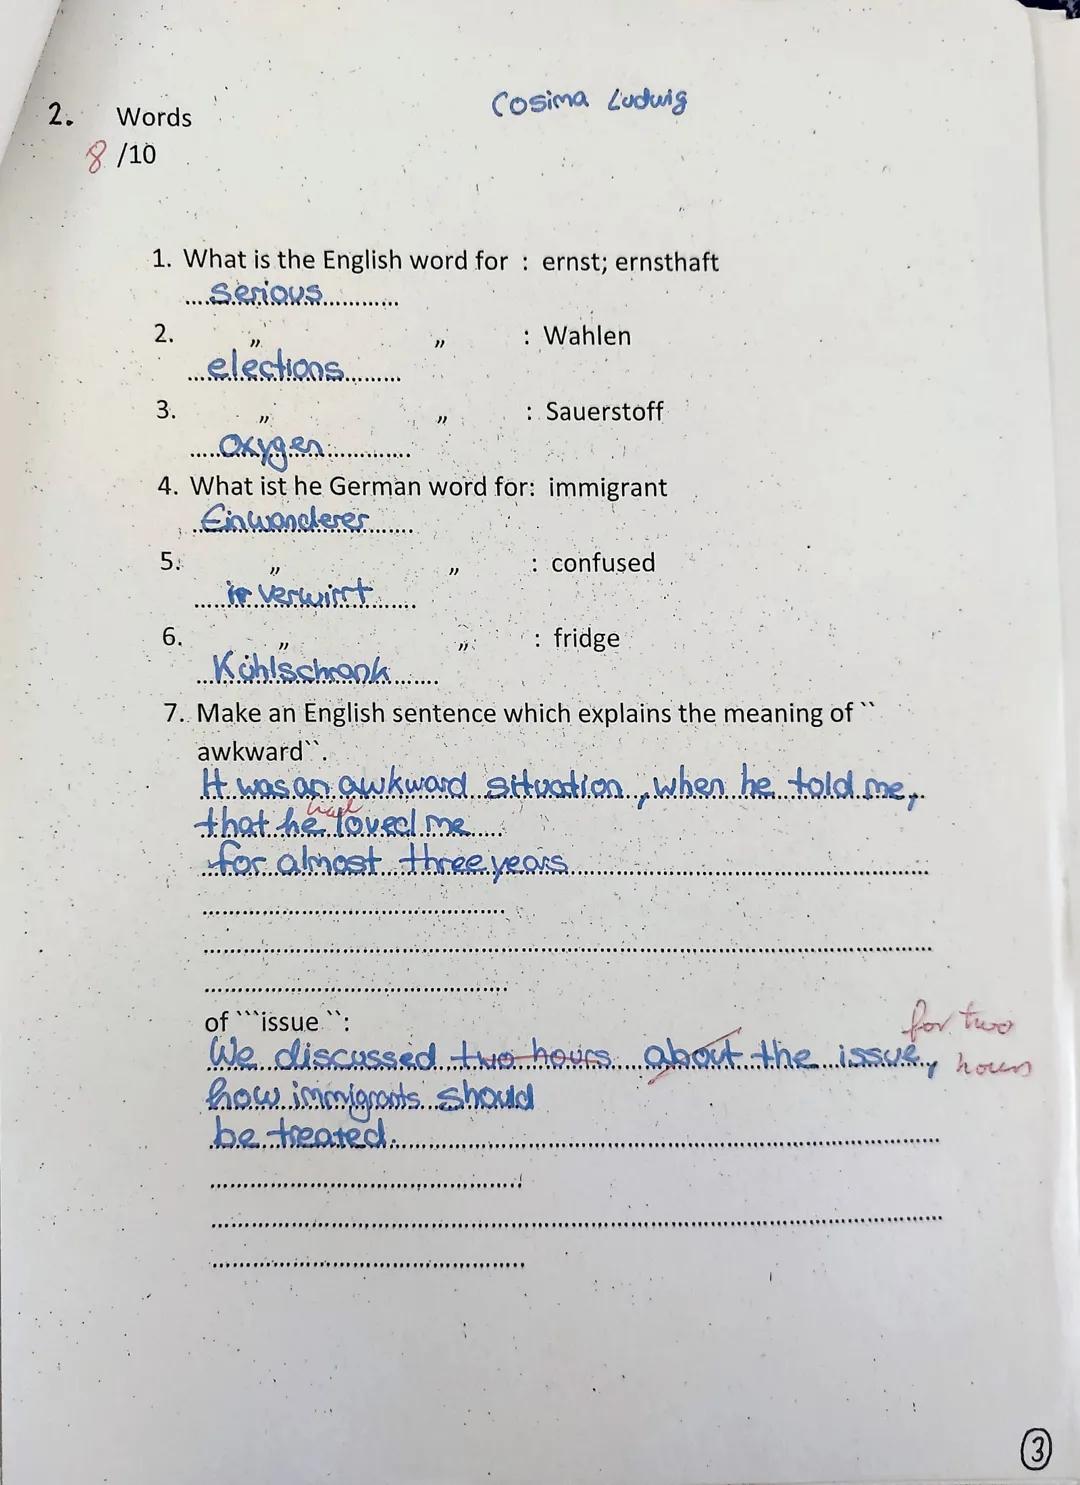 Cosima Ludwig
2. Words
8 /10
1. What is the English word for : ernst; ernsthaft
....serious............
2. " " : Wahlen
...elections.........
3. " " : Sauerstoff
.....oxygen.............
4. What ist he German word for: immigrant
..Einwanderer.......
5. " " : confused
.....verwirrt.......
6. " " : fridge
..Kühlschrank.......
7. Make an English sentence which explains the meaning of ``
awkward``.
It was an awkward situation, when he told me,
had
that he loved me
for almost three years
of ```issue``:
for two
We discussed two hours about the issue, hours
how immigrants should
be treated.
3